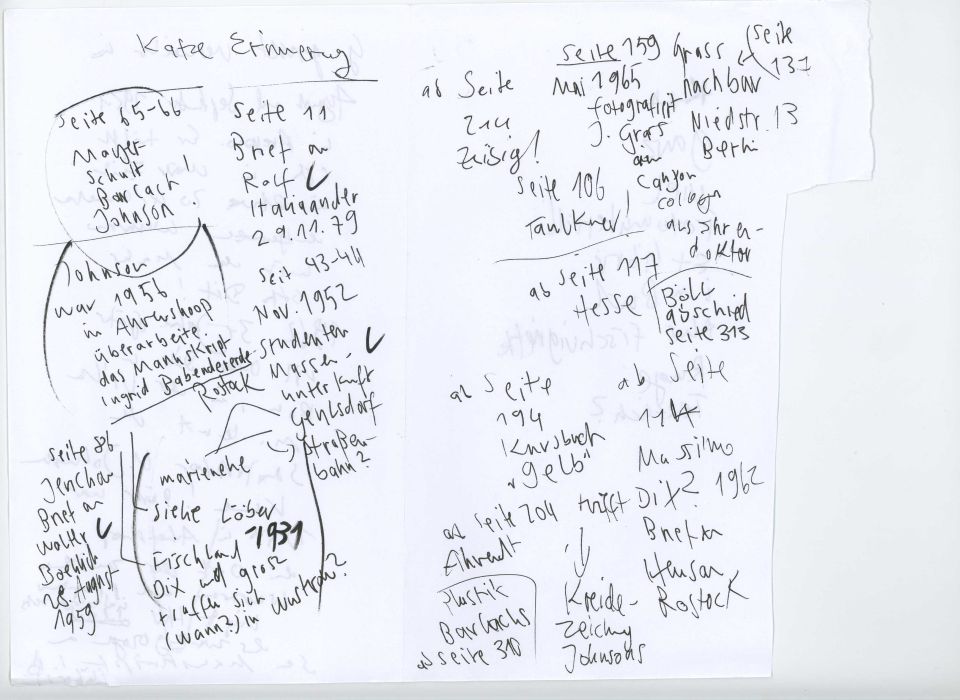 Katze Erinnerung
Seite 65-66
Mayer
Schult
Barlach !
Johnson
Johnson
war 1956
in Ahrenshoop
überarbeite.
das Manuskript
Ingrid Babendererde
Rostock
Seite 86
Jencha
Brief an
Walter
Boehlich
28. August
1959
marienehe
siehe Löber
-1931
Fischland
Dix und grosz
treffen sich
(wann?) in Wustrow?
Seite 11
Brief an
Rolf
Italiaander
29.11.79
Seit 43-44
Nov. 1952
Studenten
Massen-
unterkunft
Gehlsdorf
Straßen-
bahn?
ab Seite
214
Zeisig!
Seite 159
Mai 1965
fotografiert
J. Grass
am
Canyon
Cologn
aus Ihren-
doktor
Grass
nachbar
Niedstr. 13
Berlin
Seite
131
Seite 106
Faulkner!
ab Seite 117
Hesse
Böll
abschied
Seite 313
ab Seite
194
Kursbuch
"gelb"
ab Seite 204
Ahrendt
Plastik
Barlachs
ab Seite 310
ab Seite
114
Massimo
trifft Dix? 1962
Brief an
Hensan
Rostock
Kreide-
Zeichng
Johnsons